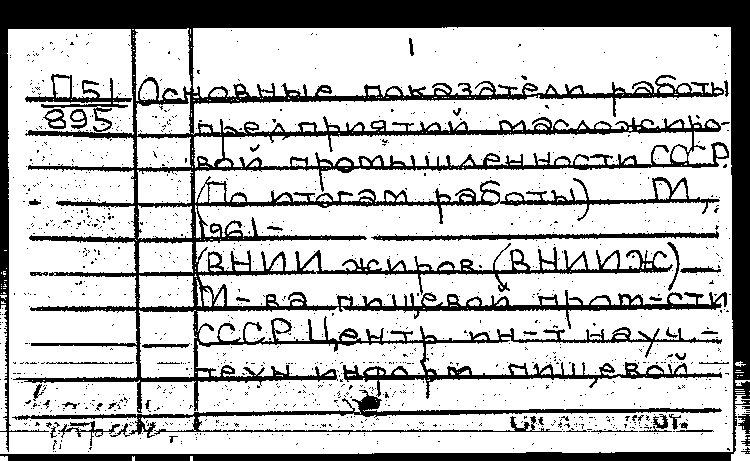 1
П51 Основные показатели работы
895 предприятий масложиро-
вой промышленности СССР
(По итогам работы) М.,
1961-
(ВНИИ жиров (ВНИИЖ)
М-ва пищевой пром-сти
СССР Центр. ин-т науч.-
техн информ. пищевой